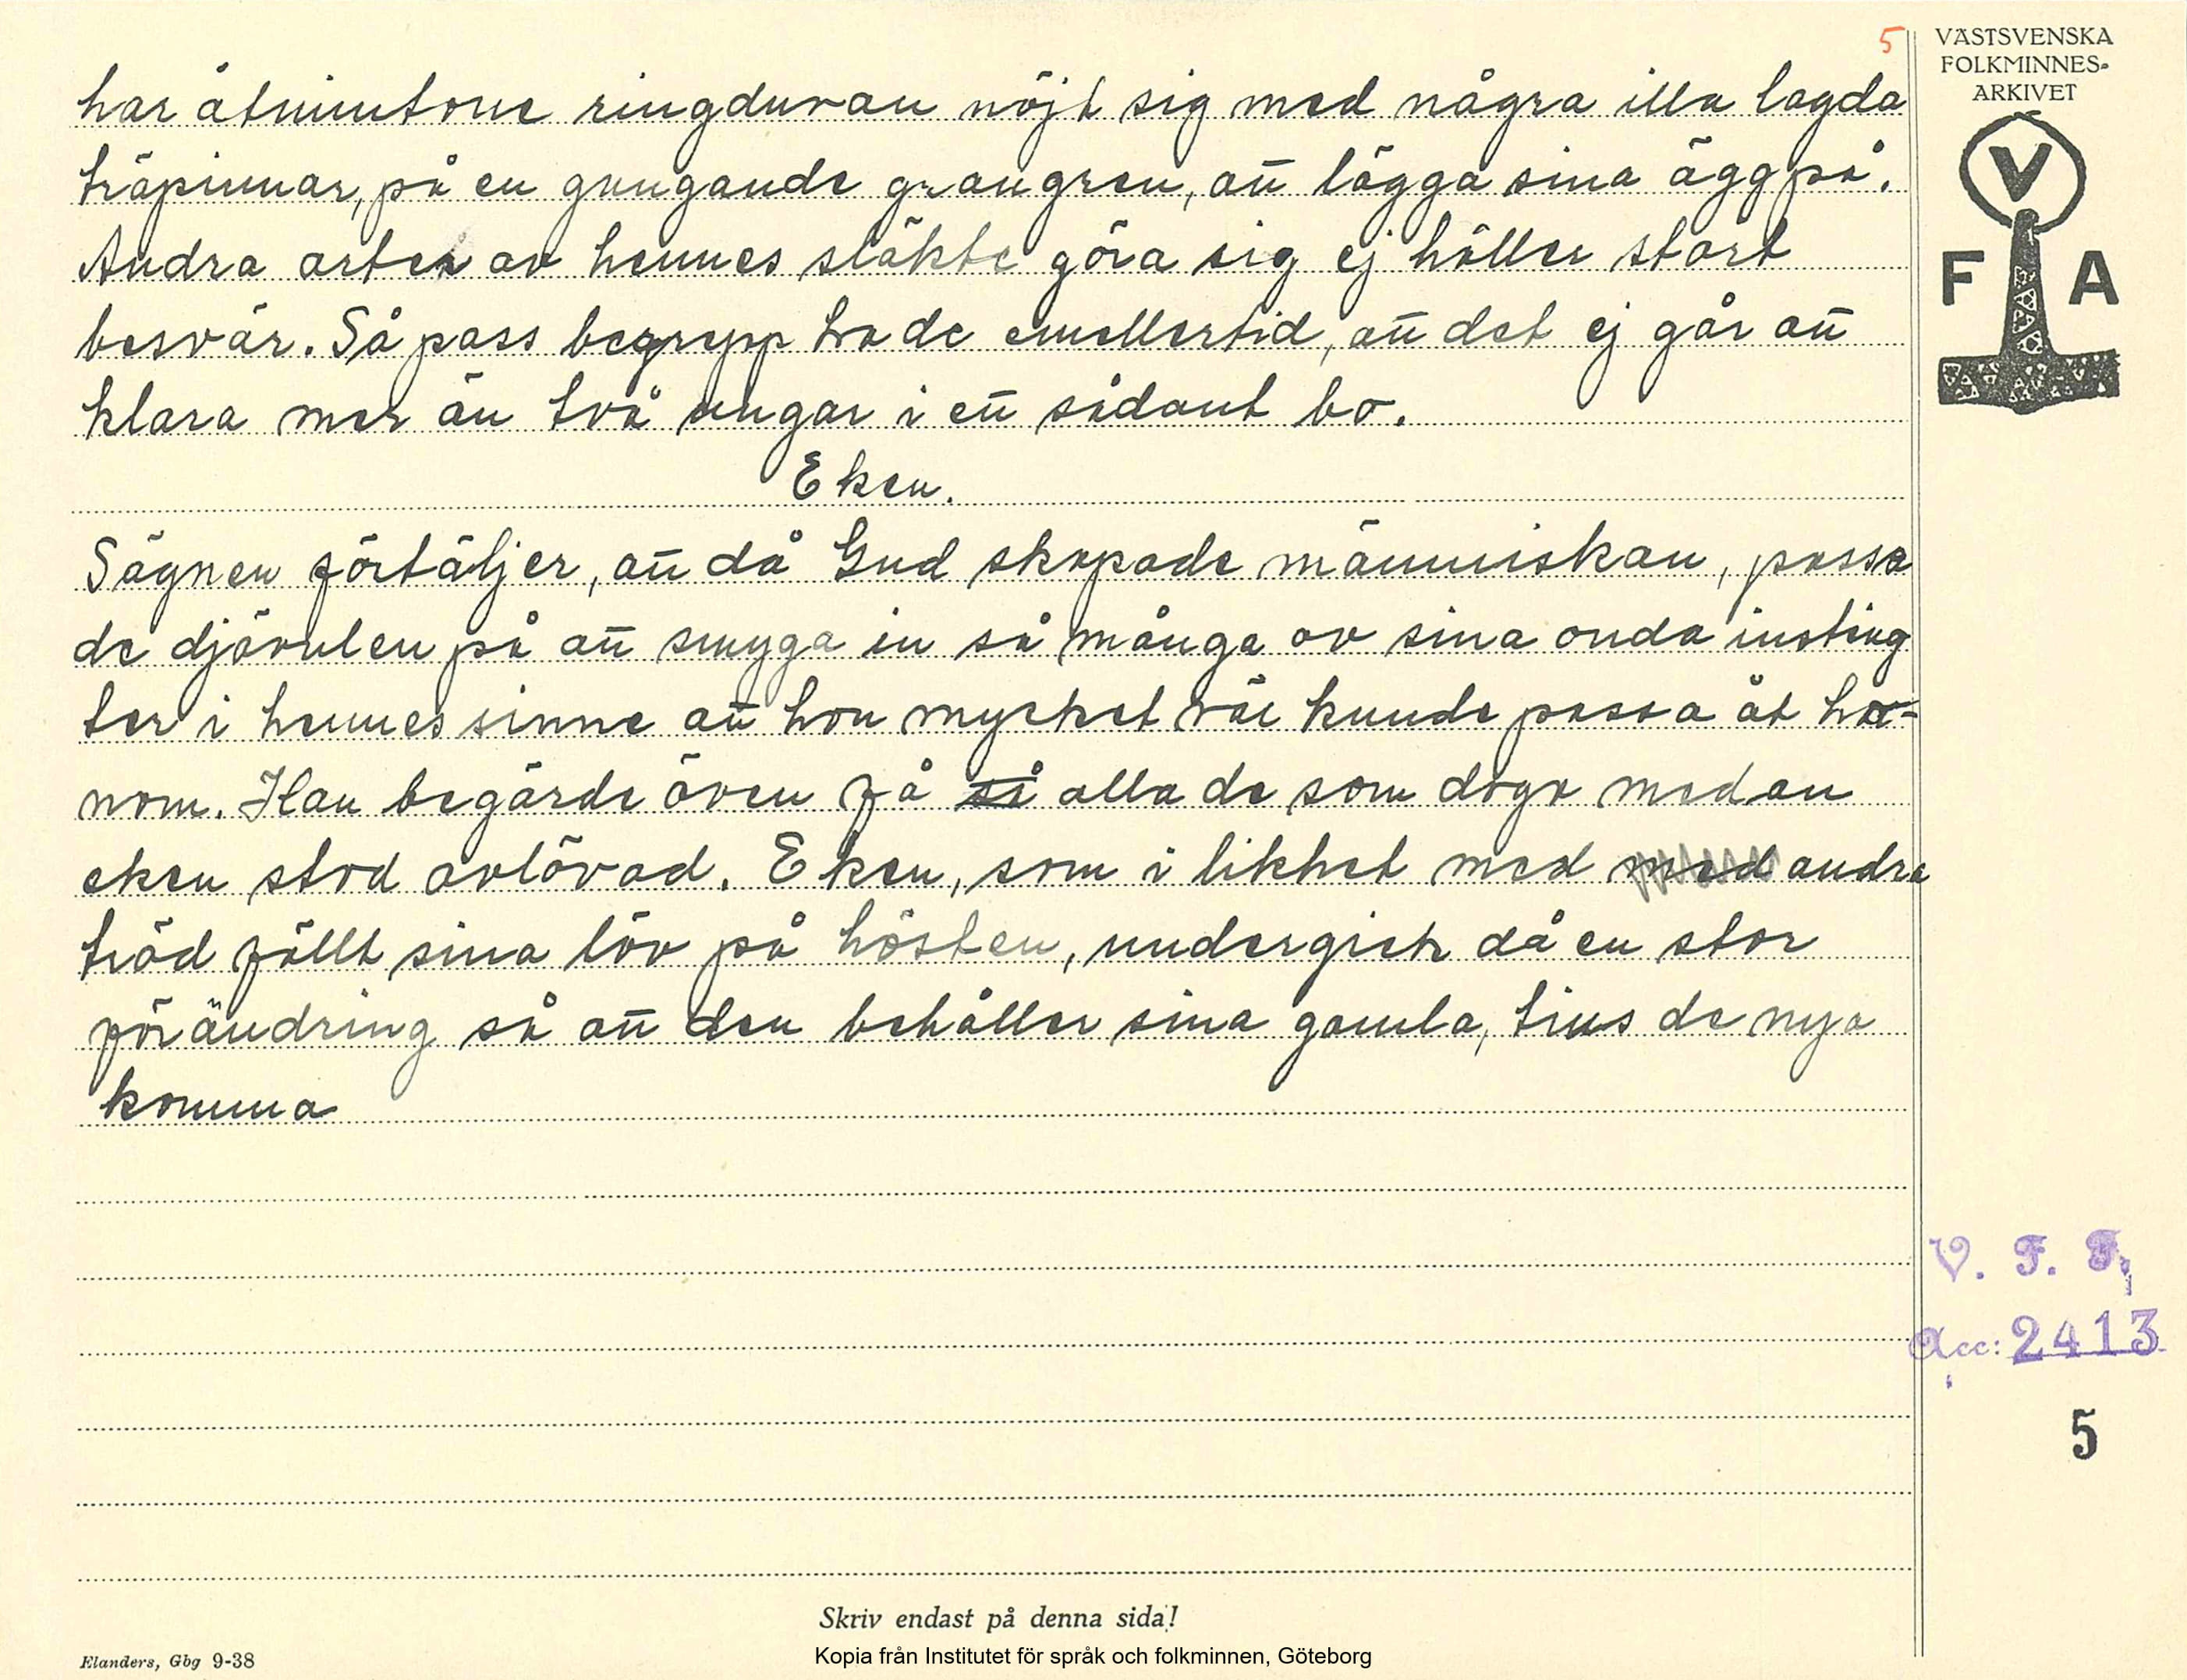 5
VÄSTSVENSKA
FOLKMINNES-
ARKIVET
V
F A
har åtminstone ringduvan nöjt sig med några illa lagda
träpinnar, på en gungande grangren, att lägga sina ägg på.
Andra arter av hennes släkte göra sig ej håller stort
besvär. Så pass begrepp ha de emellertid, att det ej går att
klara mer än två ungar i ett sådant bo.
Eken.
Sägnen förtäljer, att då Gud skapade människan, passa
de djävulen på att smyga in så många av sina onda insting
ter i hennes sinne att hon mycket väl kunde passa åt ho-
nom. Han begärde även få så alla de som dogo medan
eken stod avlövad. Eken, som i likhet med med andra
träd fällt sina löv på hösten, undergick då en stor
förändring så att den behåller sina gamla, tius de nya
komma
V. F. F.
Acc: 2413
5
Skriv endast på denna sida!
Kopia från Institutet för språk och folkminnen, Göteborg
Elanders, Gbg 9-38